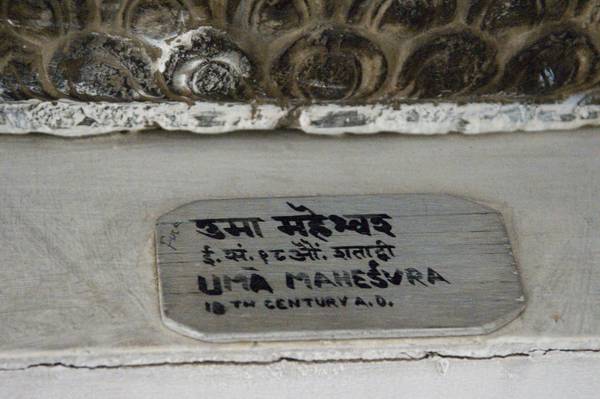 उमा महेश्वर
ई.सं.१८औं. शताब्दी
UMĀ MAHEŚVRA
18TH CENTURY A.D.